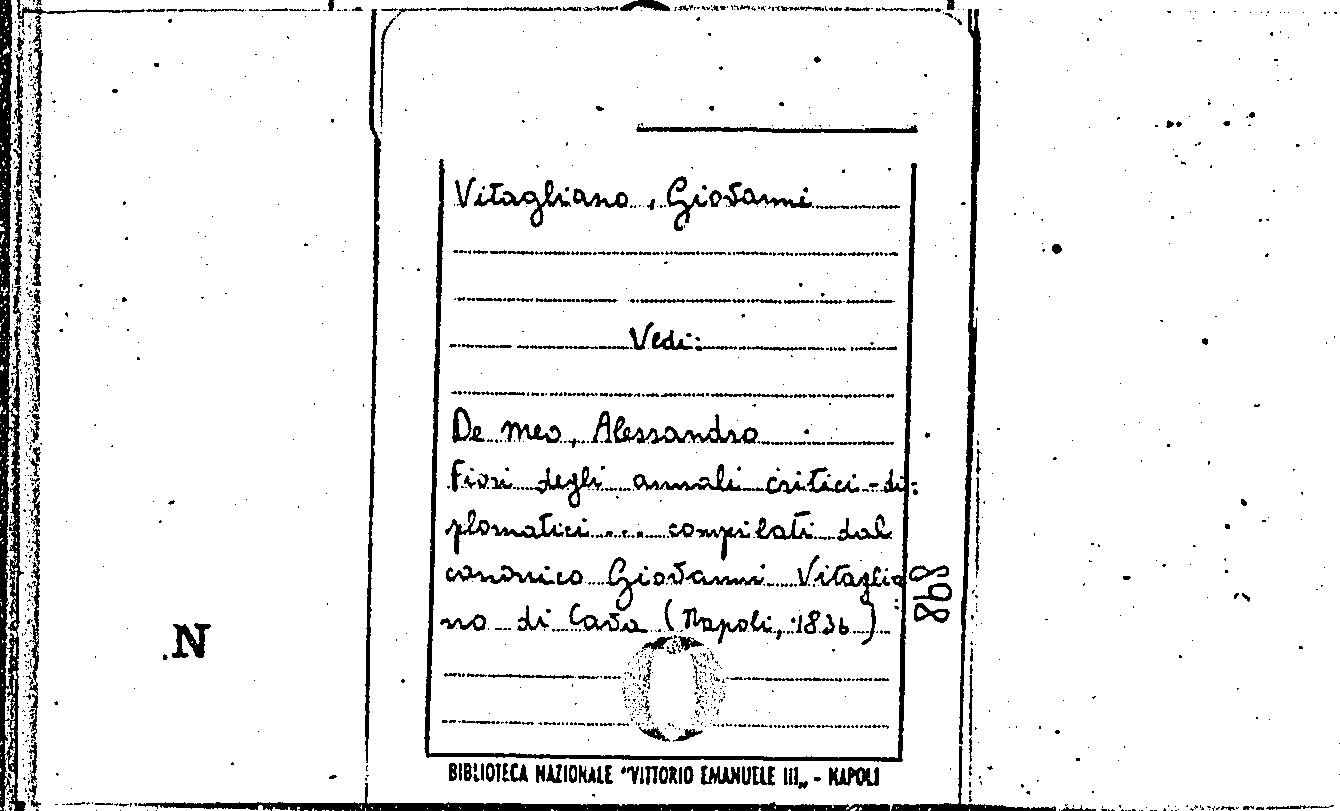 Vitagliano, Giovanni
Vedi:
De Meo, Alessandro
Fiori degli annali critici-di:
plomatici .... compilati dal
canonico Giovanni Vitaglia
no di Cava (Napoli, 1836)
898
N
BIBLIOTECA NAZIONALE "VITTORIO EMANUELE III„ - NAPOLI